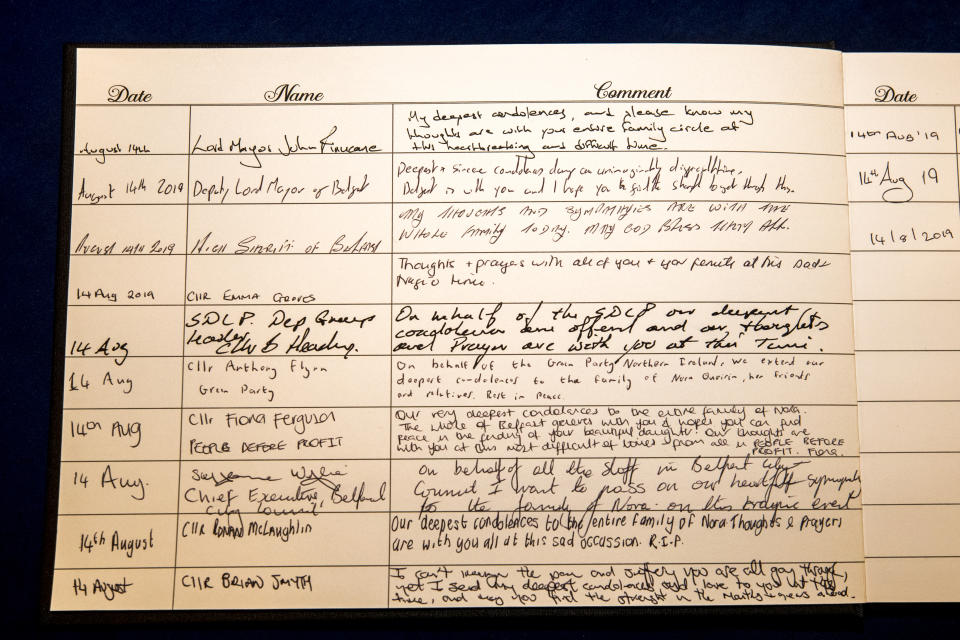 Date Name Comment Date
My deepest condolences, and please know my
thoughts are with your entire family circle at
August 14th Lord Mayor John Finucane this heartbreaking and difficult time.
Deepest + sincere condolences during an unimaginably
August 14th 2019 Deputy Lord Mayor of Belfast Belfast is with you and I hope you to find the strength to get through this.
MY THOUGHTS AND SYMPATHIES ARE WITH THE
August 14th 2019 HIGH SHERIFF OF BELFAST WHOLE FAMILY TODAY. MAY GOD BLESS THEM ALL.
Thoughts + prayers with all of you + your family at this sad +
14 Aug 2019 Cllr EMMA GROVES tragic time.
SDLP. Dep Group On behalf of the SDLP our deepest
Leader condolences are offered and our thoughts
14 Aug Cllr and Prayer are with you at this Time.
14 Aug Cllr Anthony Flynn On behalf of the Green Party Northern Ireland, we extend our
Green Party deepest condolences to the family of Nora Quoirin, her friends
and relatives. Rest in peace.
14th Aug Cllr Fiona Ferguson Our very deepest condolences to the entire family of Nora.
The whole of Belfast grieves with you & hopes you can find
PEOPLE BEFORE PROFIT peace in the finding of your beautiful daughter. Our thoughts are
with you at this most difficult of times - from all in PEOPLE BEFORE
PROFIT. Fiona.
14 Aug. Suzanne Wylie On behalf of all the staff in Belfast City
Chief Executive, Belfast Council I want to pass on our heartfelt sympathy
City Council to the family of Nora on this tragic event
14th August Cllr RONAN McLaughlin Our deepest condolences to the entire family of Nora Thoughts & Prayers
are with you all at this sad occassion. R.I.P.
14 August Cllr BRIAN SMYTH I can't imagine the pain and suffering you are all going through,
yet I send my deepest condolences and love to you at this
time, and may you find the strength in the months & years ahead.
14th AUG '19
14th Aug 19
14/8/2019